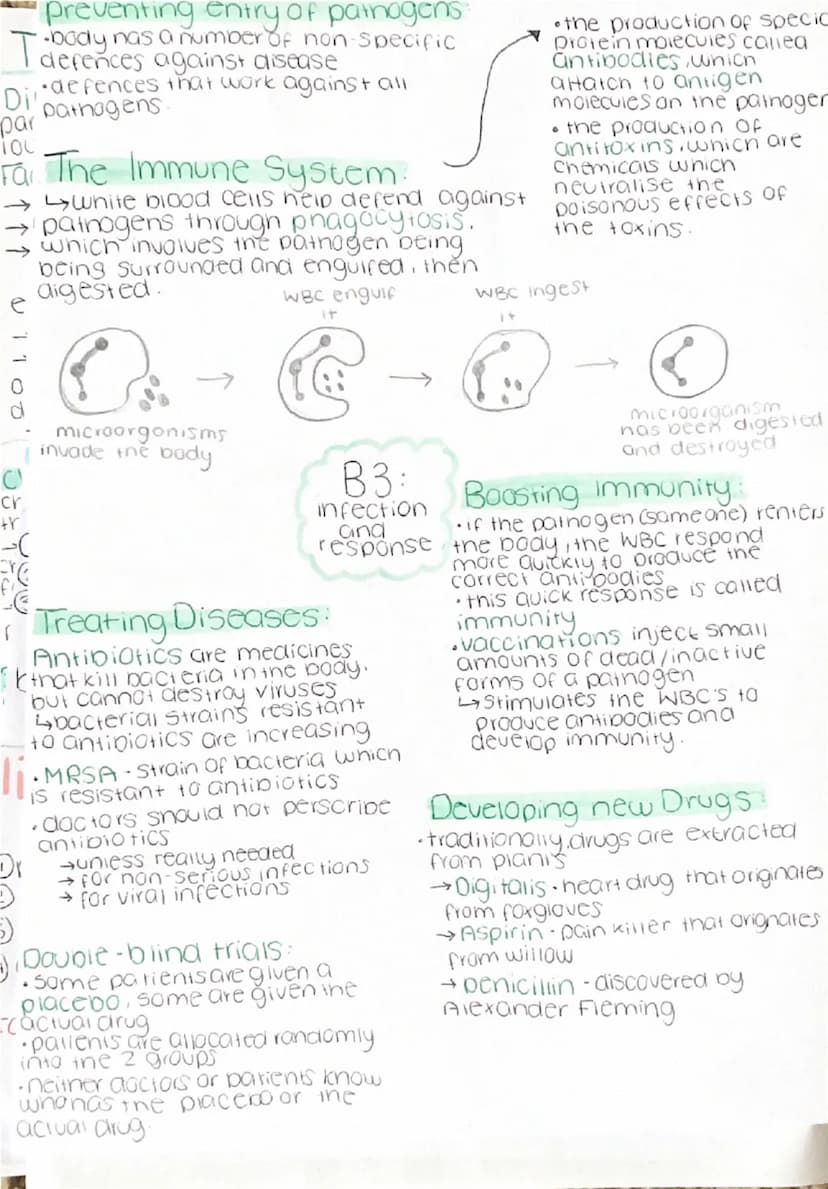 preventing entry of pathogens:
•body has a number of non-specific
defences against disease
•defences that work against all
pathogens.
The Immune System:
→ ↳white blood cells help defend against
→ pathogens through phagocytosis.
→ which involves the pathogen being
being surrounded and engulfed, then
digested.
•the production of specic
protein molecules called
antibodies, which
attatch to antigen
molecules on the pathogen
• the production of
antitoxins, which are
chemicals which
neutralise the
poisonous effects of
the toxins.
WBC engulf
it
WBC ingest
it
microorgonisms
invade the body
microorganism
has been digested
and destroyed
B3:
infection
and
response
Boosting Immunity:
•if the pathogen (same one) renters
the body, the WBC respond
more quickly to produce the
correct antibodies
•this quick response is called
immunity
•vaccinations inject small
amounts of dead/inactive
forms of a pathogen
↳stimulates the WBC's to
produce antibodies and
develop immunity.
Treating Diseases:
Antibiotics are medicines
that kill bacteria in the body,
but cannot destroy viruses
↳bacterial strains resistant
to antibiotics are increasing
•MRSA - strain of bacteria which
is resistant to antibiotics
•doctors should not perscribe
antibiotics
→unless really needed
→ for non-serious infections
→ for viral infections
Double-blind trials:
•some patients are given a
placebo, some are given the
actual drug
•patients are allocated randomly
into the 2 groups
•neither doctors or patients know
who has the placebo or the
actual drug.
Developing new Drugs:
•traditionally, drugs are extracted
from plants
→Digitalis - heart drug that originates
from foxgloves
→Aspirin - pain killer that orignates
from willow
→ penicillin - discovered by
Alexander Fleming